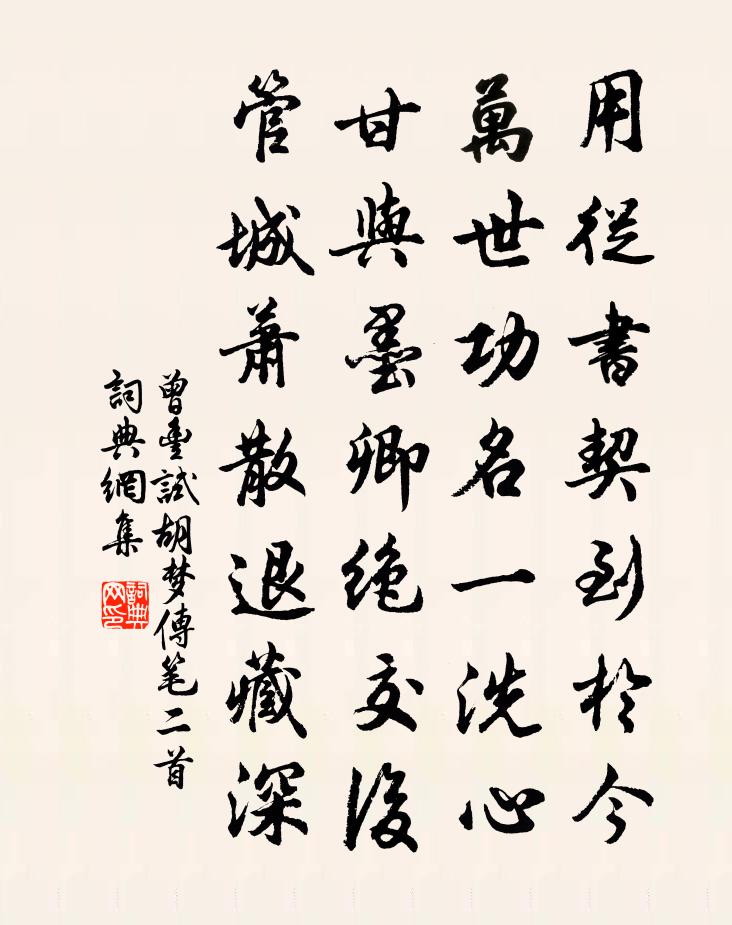 用從書契到於今
萬世功名一洗心
甘與墨卿絶交後
管城蕭散退藏深
曾豊試胡梦傳笔二首
詞典網集
詞典网印